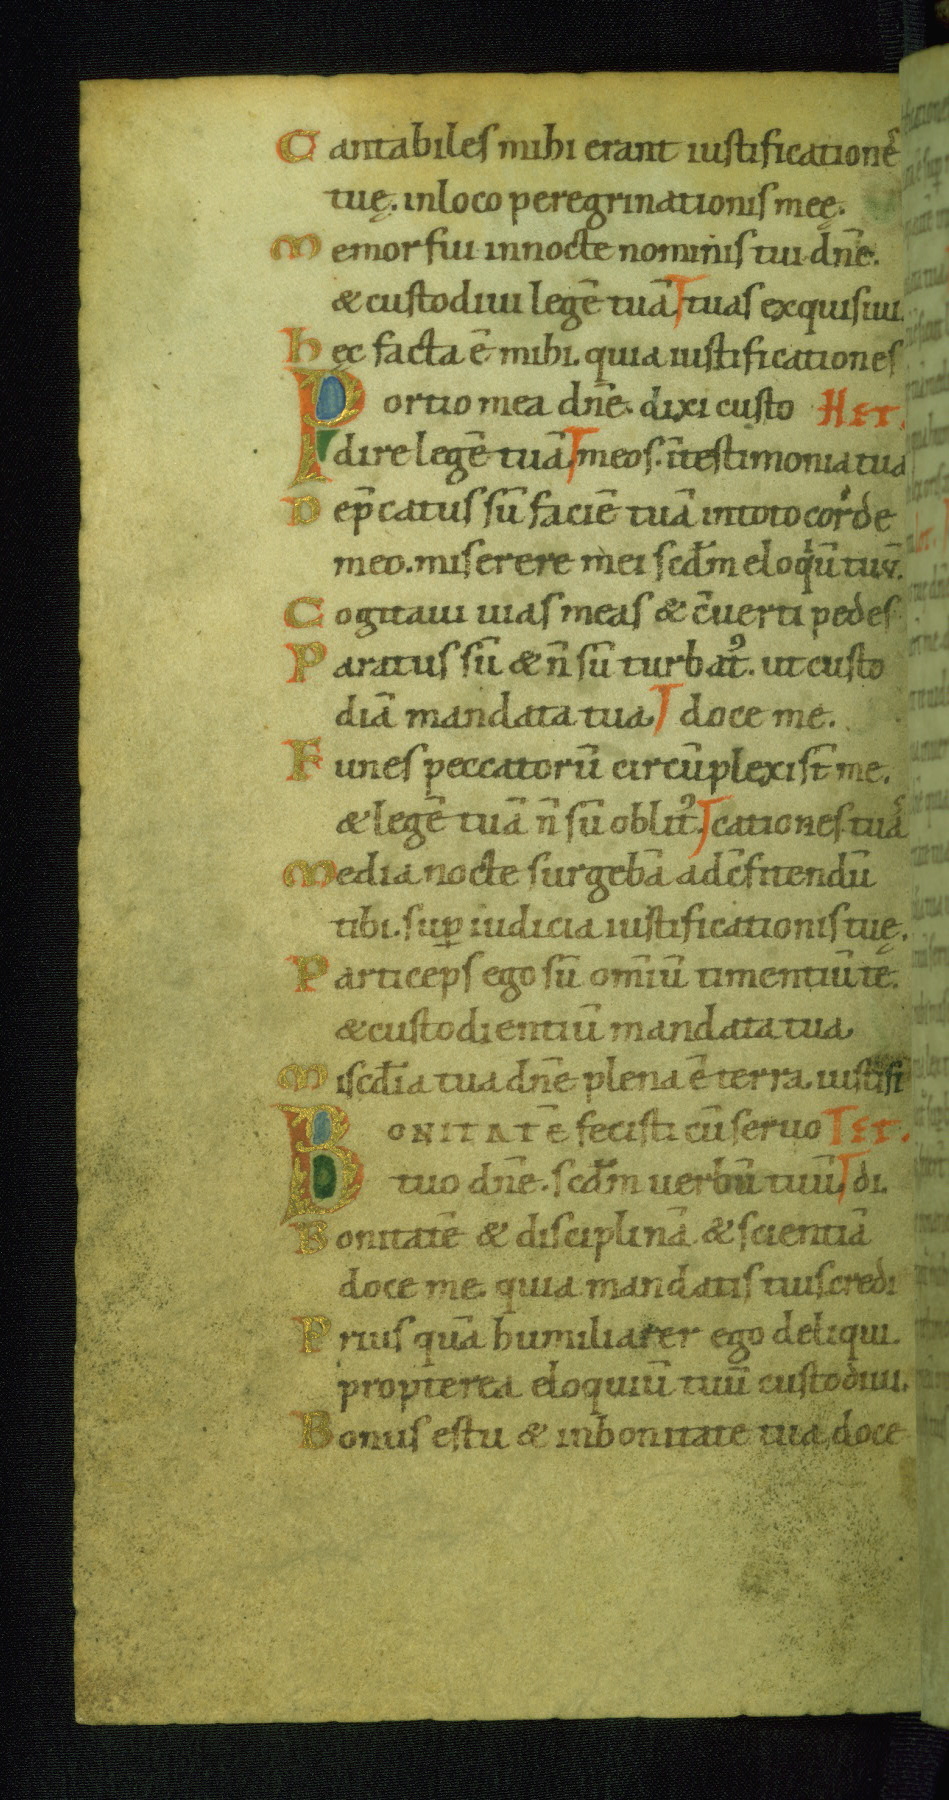 Cantabiles mihi erant iustificationeˢ
tuę. inloco peregrinationis meę.
Memor fui innocte nominis tui dn̄e.
& custodiui legē tuā tuas exquisiui.
hęc facta ē mihi. quia iustificationes
Portio mea dn̄e. dixi custo Het.
dire legē tuā meos. ītestimonia tua
Dep̄catus sū faciē tuā intoto corde
meo. miserere mei scđm eloqͥū tuū.
Cogitaui uias meas & c̄uerti pedes
Paratus sū & n̄ sū turbatꝰ. ut custo
diā mandata tua doce me.
Funes peccatorū circūplexis̄t me.
& legē tuā n̄ sū oblitꝰ. cationes tuaˢ
Media nocte surgebā adc̄fitendū
tibi. sup̱ iudicia iustificationis tuę.
Particeps ego sū om̄iū timentiū te.
& custodientiū mandata tua
Miscđia tua dn̄e plena ē terra. iustifi
BONITATē fecisti cū seruo Tet.
tuo dn̄e. scđm uerbū tuū di.
Bonitatē & disciplinā & scientiā
doce me. quia mandatis tuis credi
Prius quā humiliarer ego deliqui.
propterea eloquiū tuū custodiui.
Bonus estu & inbonitate tua doce